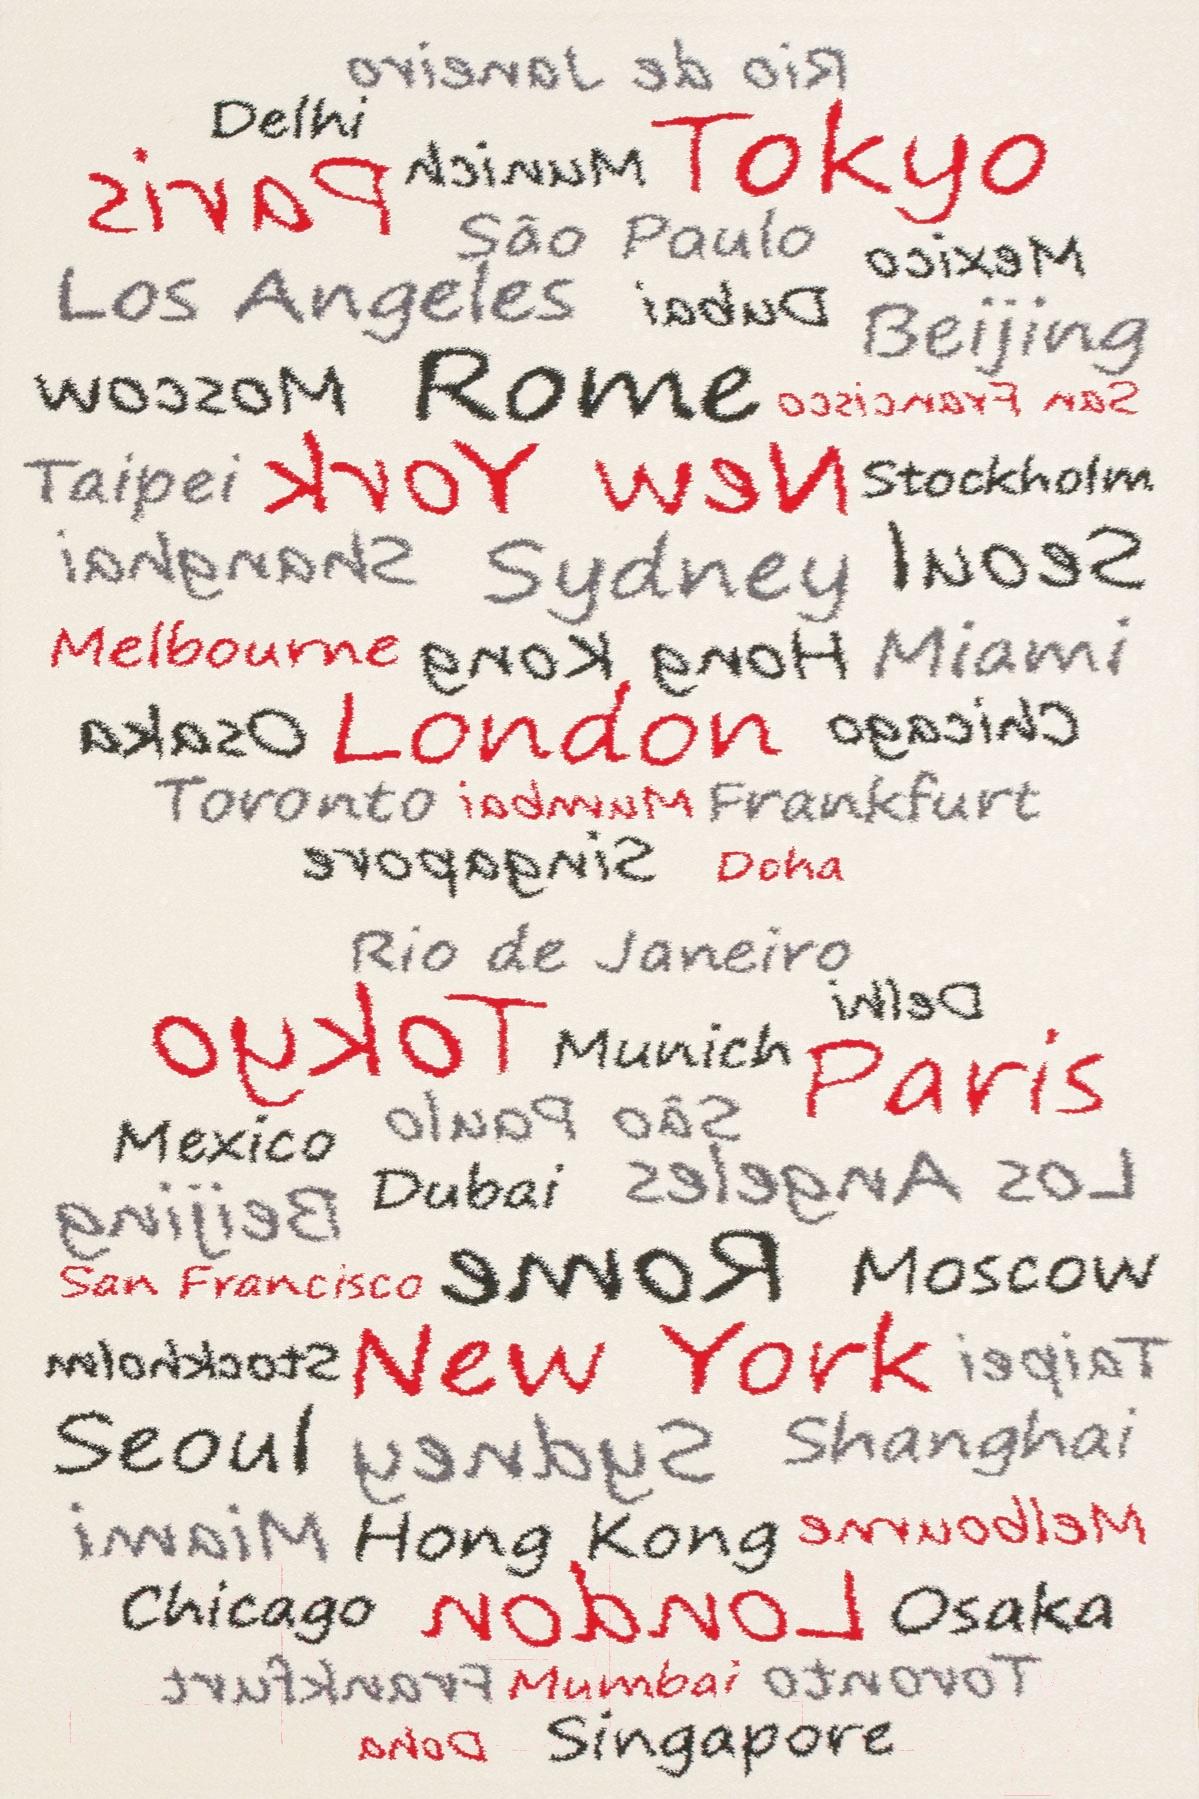 Rio de Janeiro
Delhi
Paris Munich Tokyo
São Paulo Mexico
Los Angeles Dubai Beijing
Moscow Rome San Francisco
Taipei New York Stockholm
Shanghai Sydney Seoul
Melbourne Hong Kong Miami
Osaka London Chicago
Toronto Mumbai Frankfurt
Singapore Doha
Rio de Janeiro
Delhi
Tokyo Munich Paris
Mexico São Paulo
Beijing Dubai Los Angeles
San Francisco Rome Moscow
Stockholm New York Taipei
Seoul Sydney Shanghai
Miami Hong Kong Melbourne
Chicago London Osaka
Frankfurt Mumbai Toronto
Doha Singapore